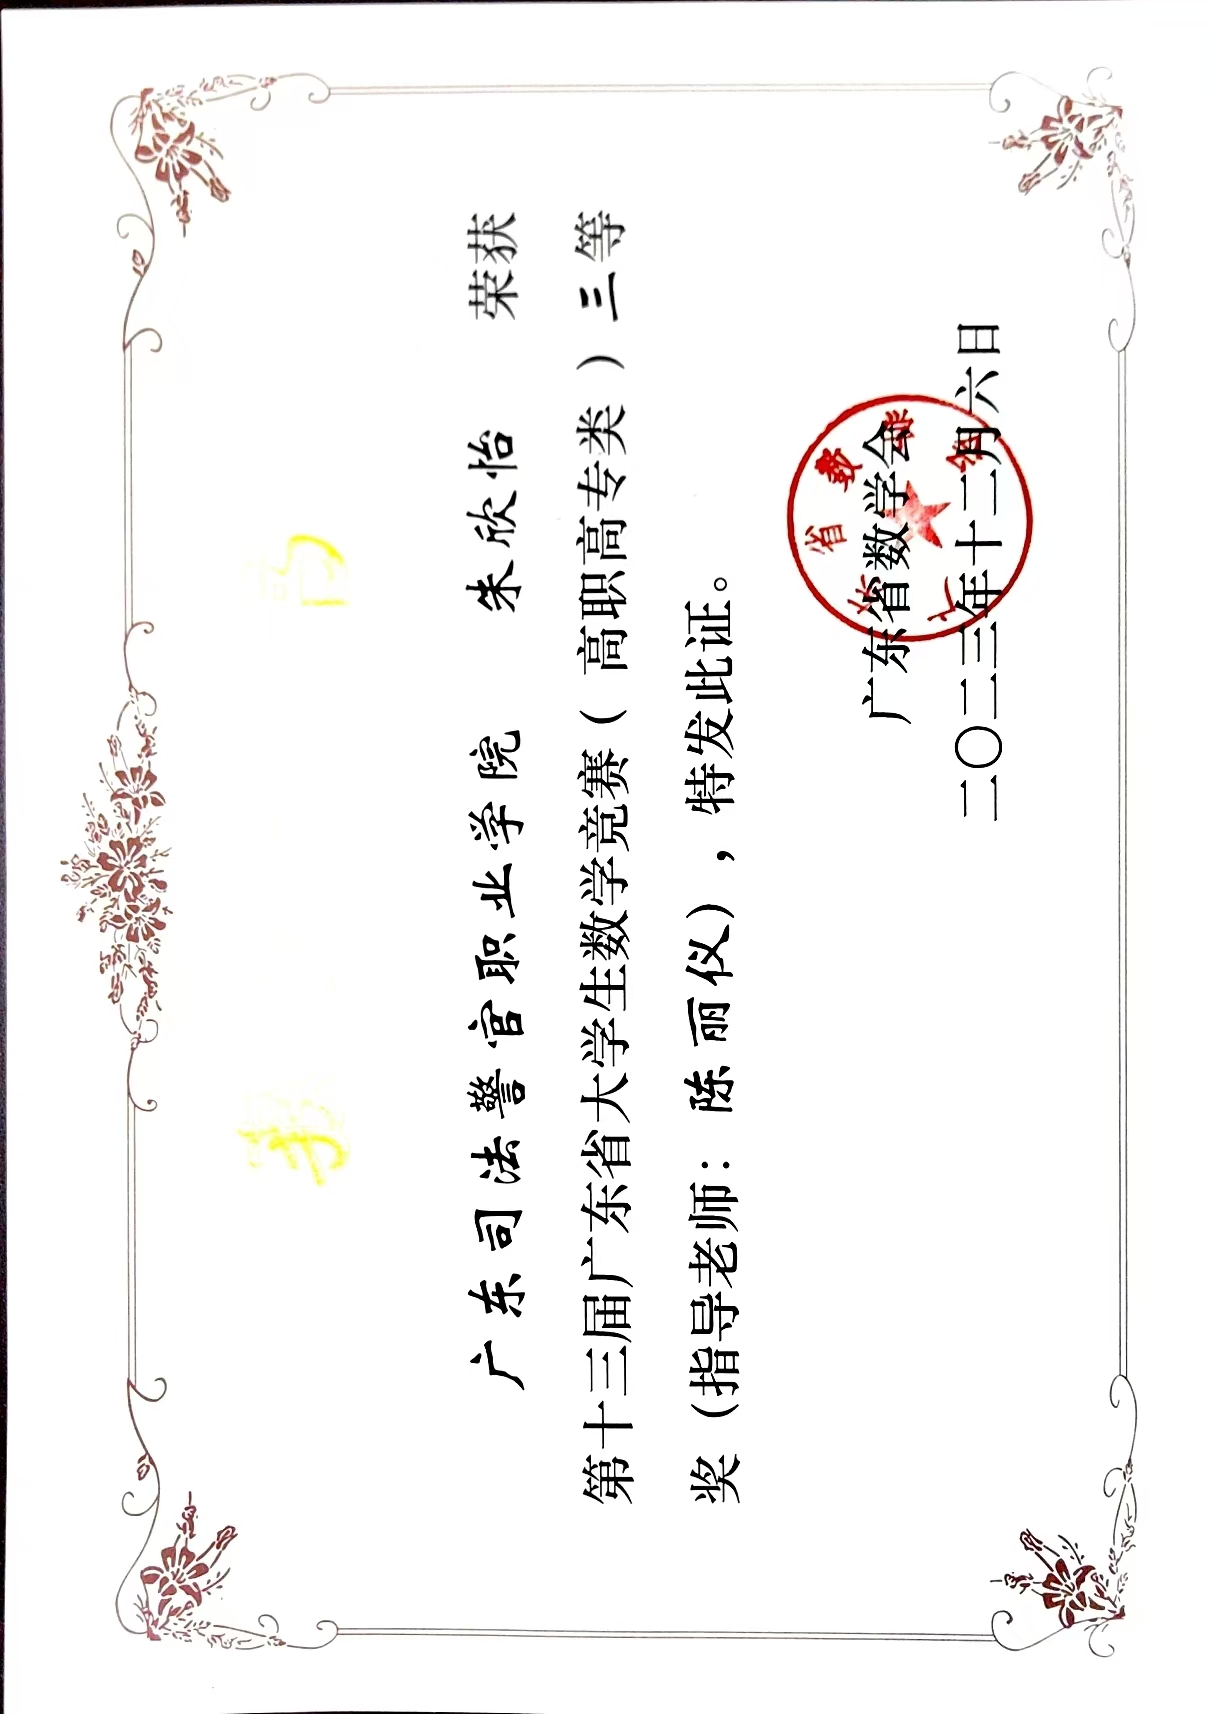 广东司法警官职业学院 朱欣怡 荣获
第十三届广东省大学生数学竞赛（高职高专类）三等
奖（指导老师：陈丽仪），特发此证。
广东省数学会
二〇二三年十二月六日